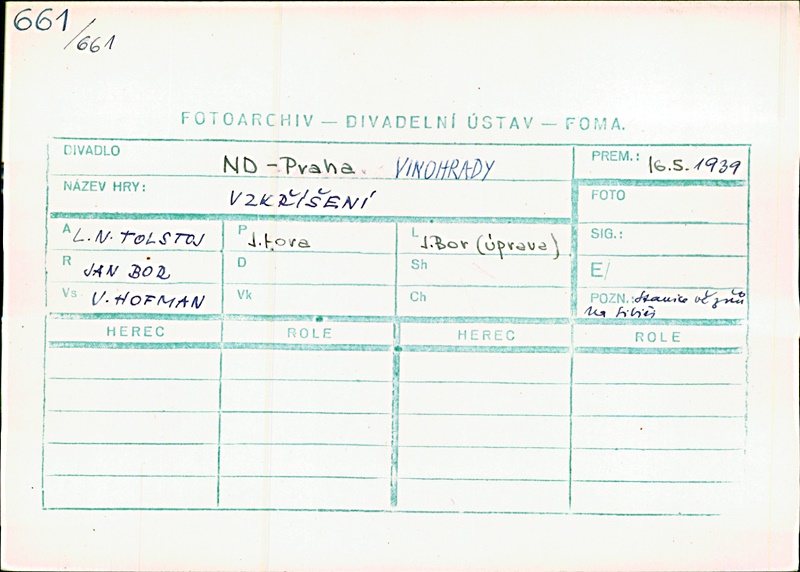 661
/661
FOTOARCHIV — DIVADELNÍ ÚSTAV — FOMA.
DIVADLO ND - Praha VINOHRADY PREM.: 16.5.1939
NÁZEV HRY: VZKŘÍŠENÍ FOTO
A L.N. TOLSTOJ P L J.Bor (úprava) SIG.:
R JAN BOR D Sh E/
Vs V. HOFMAN Vk Ch POZN.: Stanice vězňů
na Sibiři
HEREC ROLE HEREC ROLE